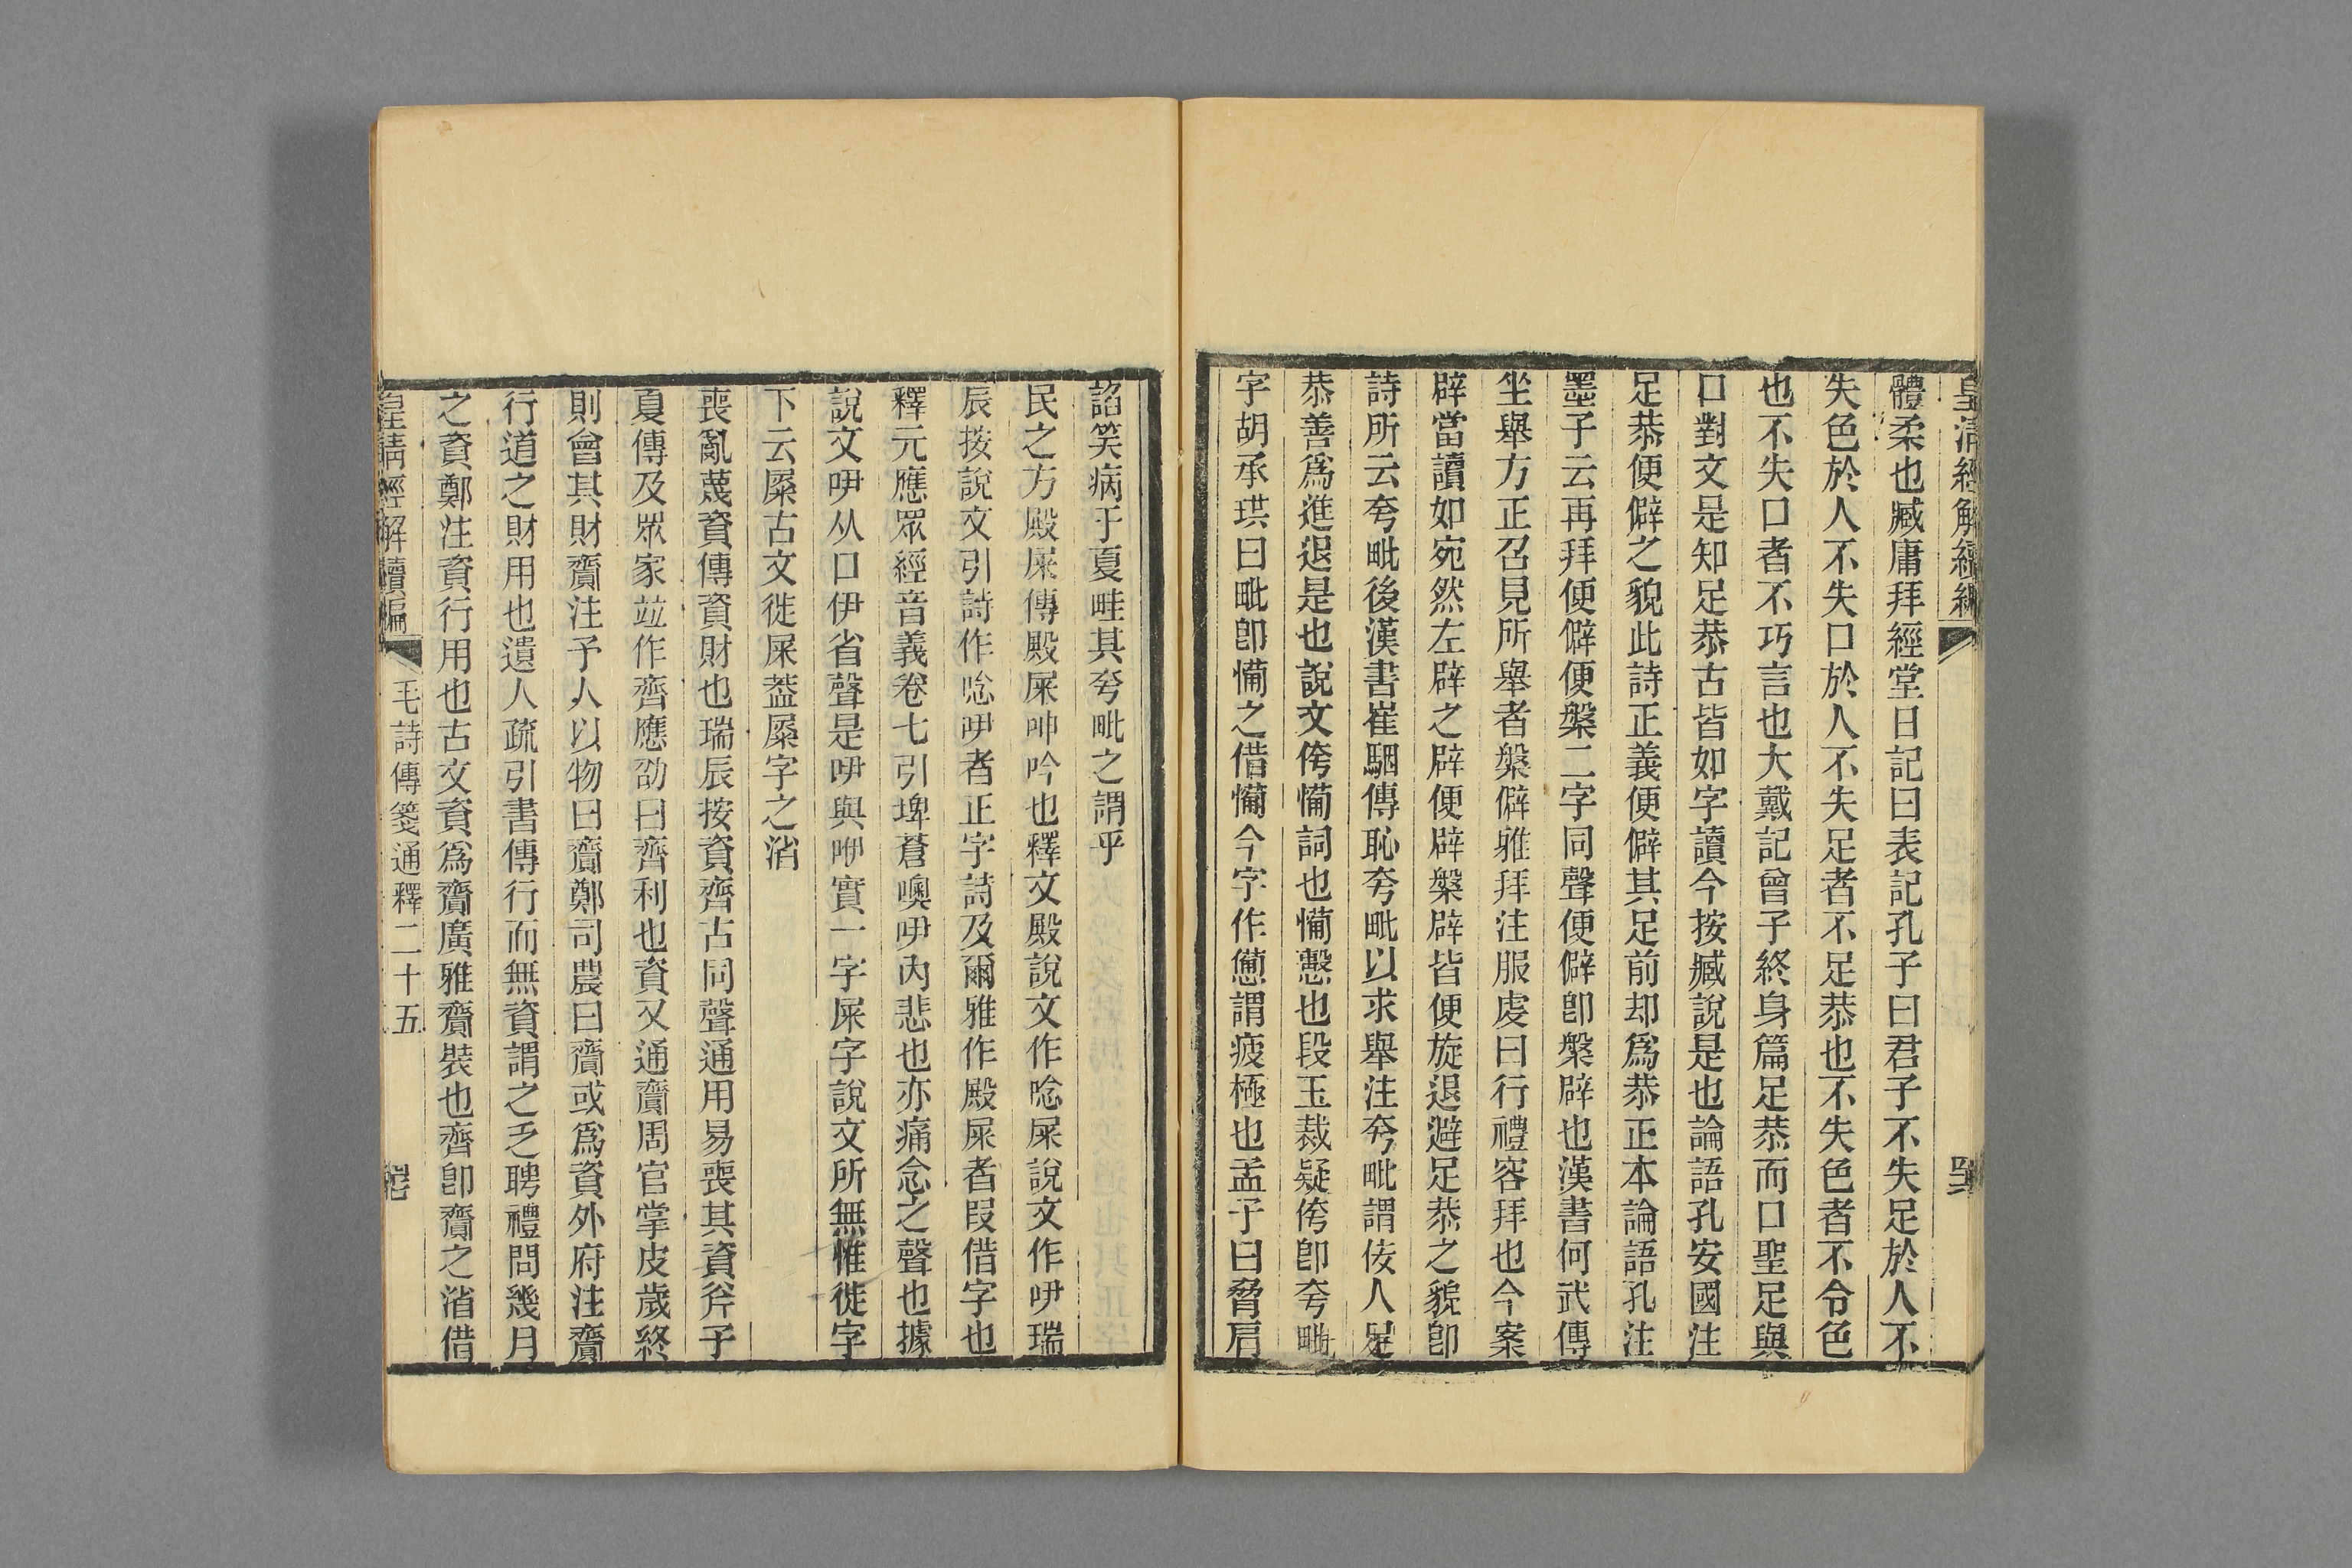 皇清經解續編
體柔也臧庸拜經堂日記曰表記孔子曰君子不失足於人不
失色於人不失口於人不失足者不足恭也不失色者不令色
也不失口者不巧言也大戴記曾子終身篇足恭而口聖足與
口對文是知足恭古皆如字讀今按臧說是也論語孔安國注
足恭便僻之貌此詩正義便僻其足前却爲恭正本論語孔注
墨子云再拜便僻便槃二字同聲便僻卽槃辟也漢書何武傳
坐舉方正召見所舉者槃僻雅拜注服虔曰行禮容拜也今案
辟當讀如宛然左辟之辟便辟槃辟皆便旋退避足恭之貌卽
詩所云夸毗後漢書崔駰傳恥夸毗以求舉注夸毗謂佞人足
恭善爲進退是也說文侉㤥詞也㤥憝也段玉裁疑侉卽夸毗
字胡承珙曰毗卽㤥之借㤥今字作憊謂疲極也孟子曰脅肩
諂笑病于夏畦其夸毗之謂乎
民之方殿屎傳殿屎呻吟也釋文殿說文作唸屎說文作吚瑞
辰按說文引詩作唸吚者正字詩及爾雅作殿屎者叚借字也
釋元應眾經音義卷七引埤蒼噢吚內悲也亦痛念之聲也據
說文吚从口伊省聲是吚與咿實一字屎字說文所無惟徙字
下云𡲴古文徙屎葢𡲴字之消
喪亂蔑資傳資財也瑞辰按資齊古同聲通用易喪其資斧子
夏傳及眾家竝作齊應劭曰齊利也資又通齎周官掌皮歲終
則會其財齎注予人以物曰齎鄭司農曰齎或爲資外府注齎
行道之財用也遺人疏引書傳行而無資謂之乏聘禮問幾月
之資鄭注資行用也古文資爲齎廣雅齎裝也齊卽齎之渻借
皇清經解續編
毛詩傳箋通釋二十五